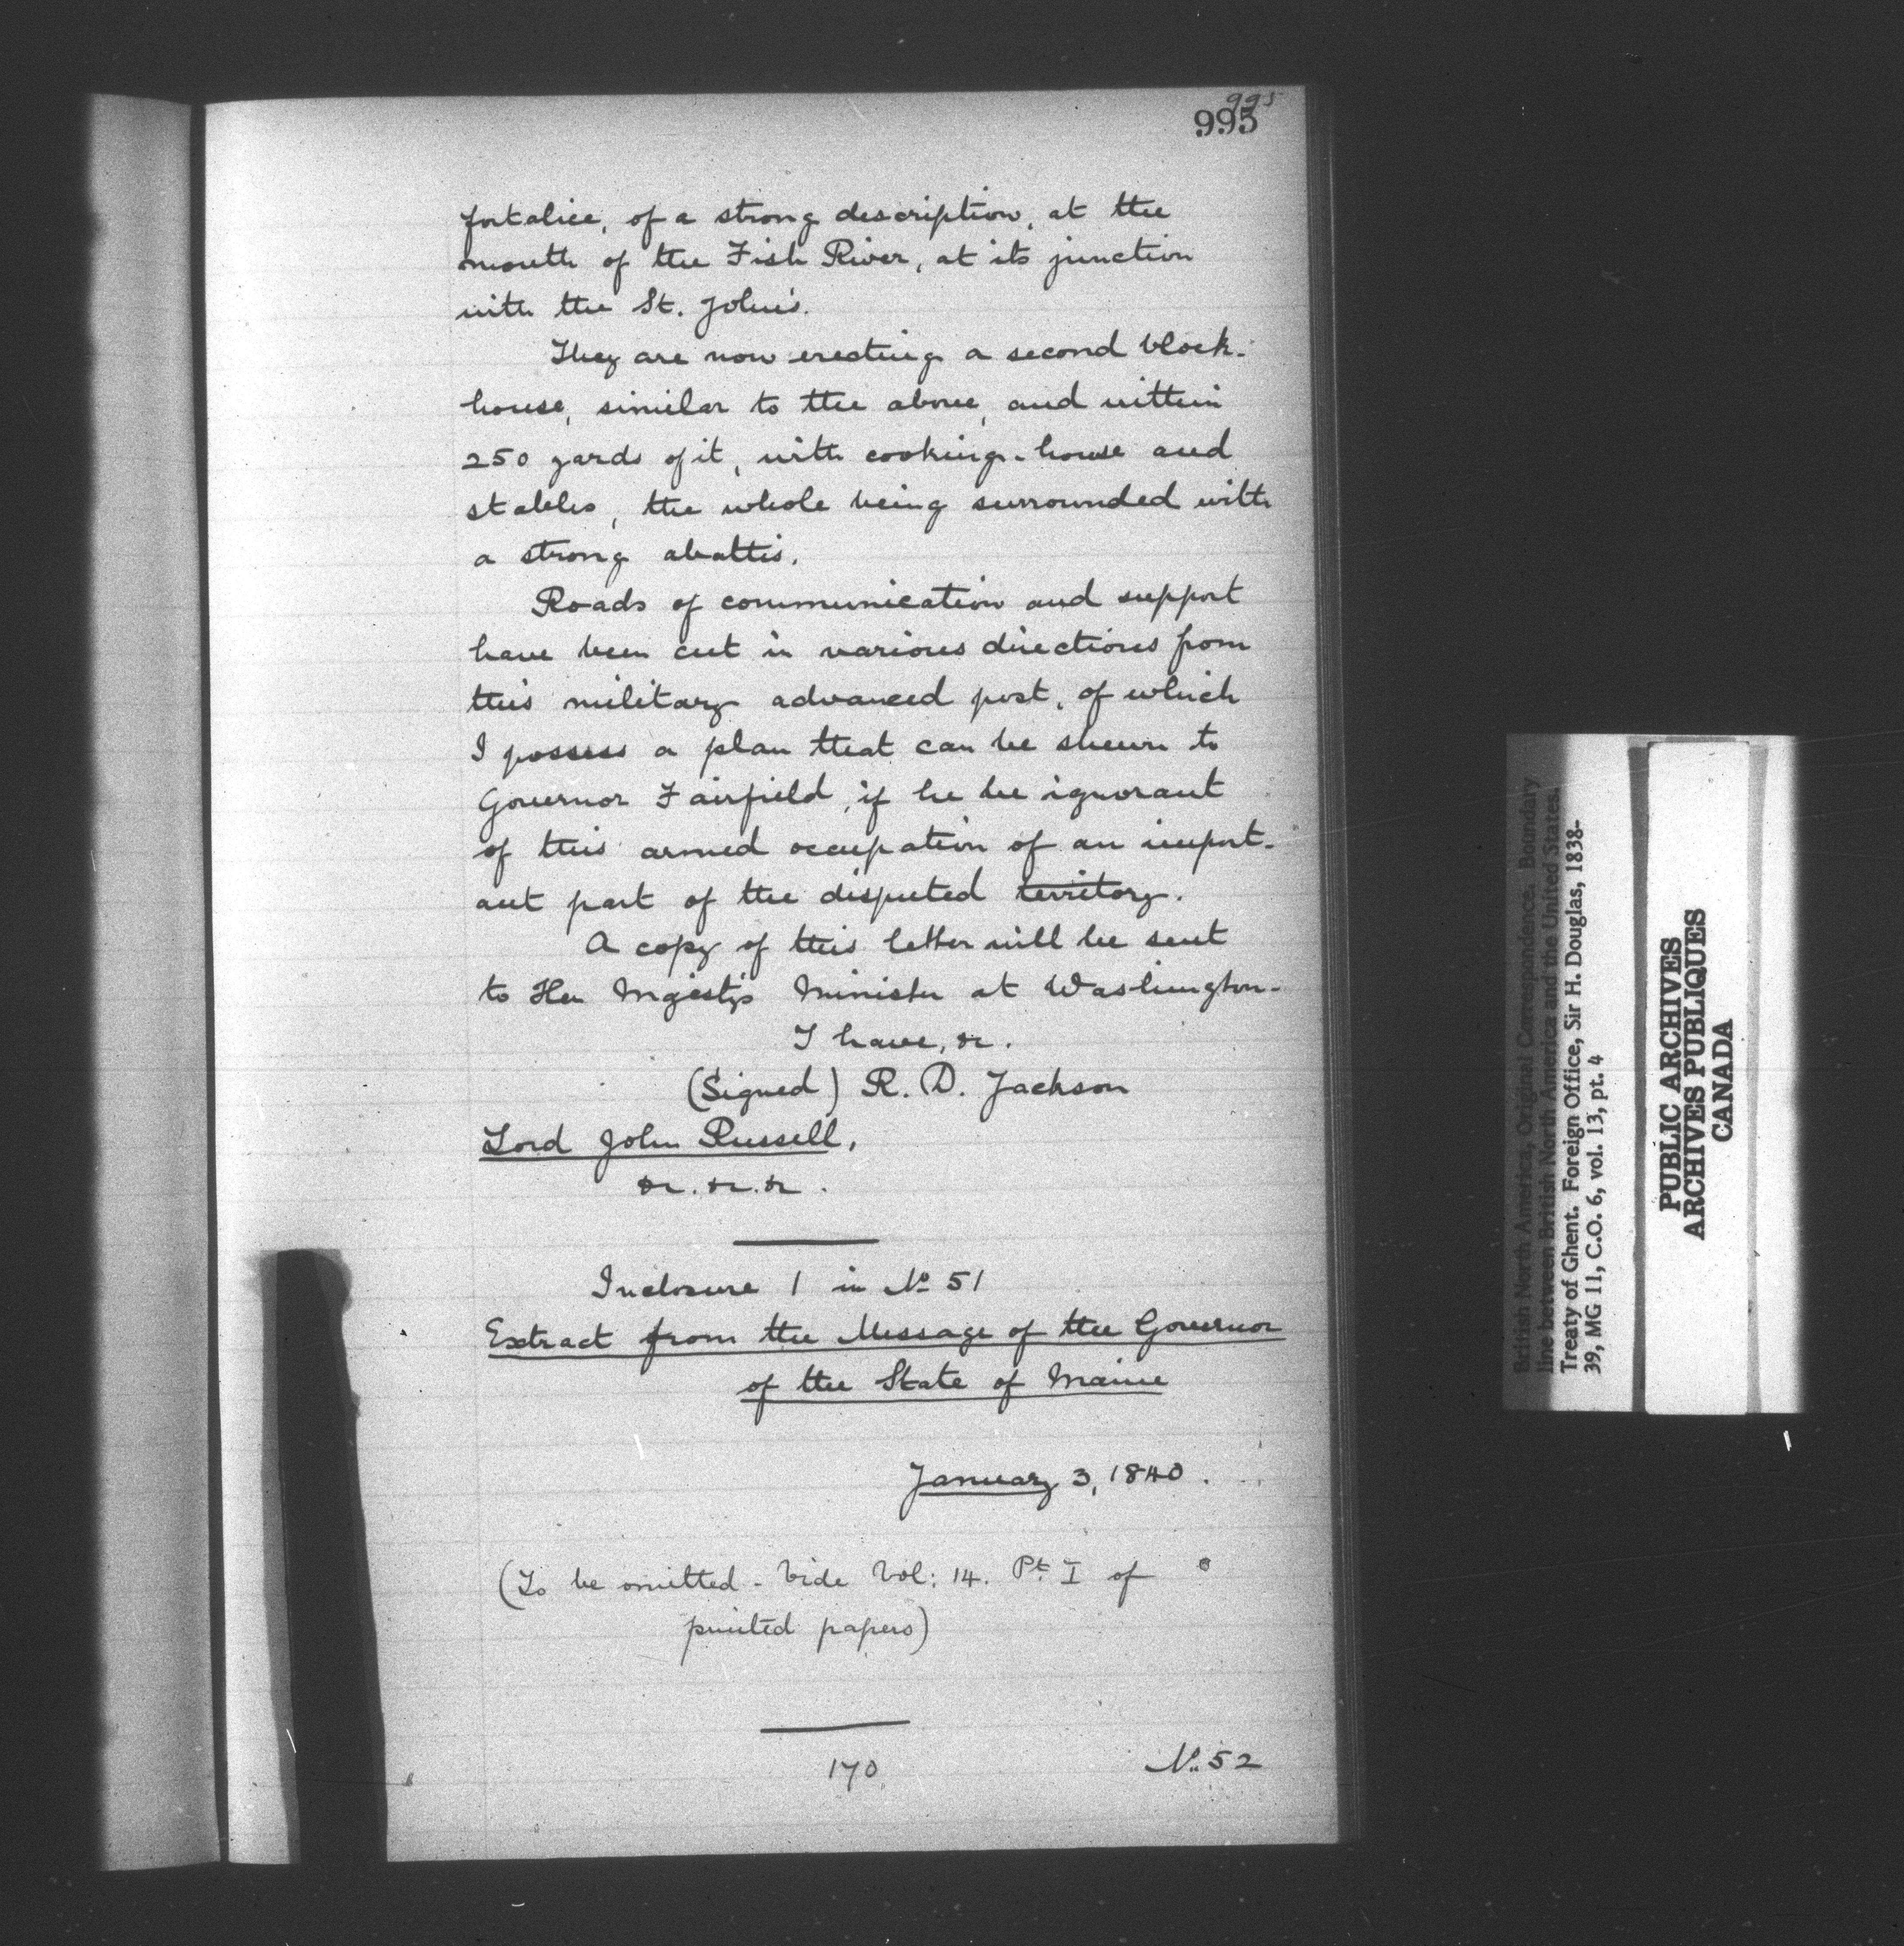 995
995
fortalice, of a strong description, at the
mouth of the Fish River, at its junction
with the St. John's.
They are now erecting a second block-
house, similar to the above, and within
250 yards of it, with cooking-house and
stables, the whole being surrounded with
a strong abattis.
Roads of communication and support
have been cut in various directions from
this military advanced post, of which
I possess a plan that can be shewn to
Governor Fairfield, if he be ignorant
of this armed occupation of an import-
ant part of the disputed territory.
A copy of this letter will be sent
to Her Majesty's Minister at Washington-
I have, &c.
(Signed) R. D. Jackson
Lord John Russell,
&c. &c. &c.
Inclosure 1 in No 51
Extract from the Message of the Governor
of the State of Maine
January 3, 1840.
(To be omitted - Vide Vol: 14. Pt. I of
printed papers)
170
No. 52
British North America, Original Correspondence. Boundary
line between British North America and the United States.
Treaty of Ghent. Foreign Office, Sir H. Douglas, 1838-
39, MG 11, C.O. 6, vol. 13, pt. 4
PUBLIC ARCHIVES
ARCHIVES PUBLIQUES
CANADA